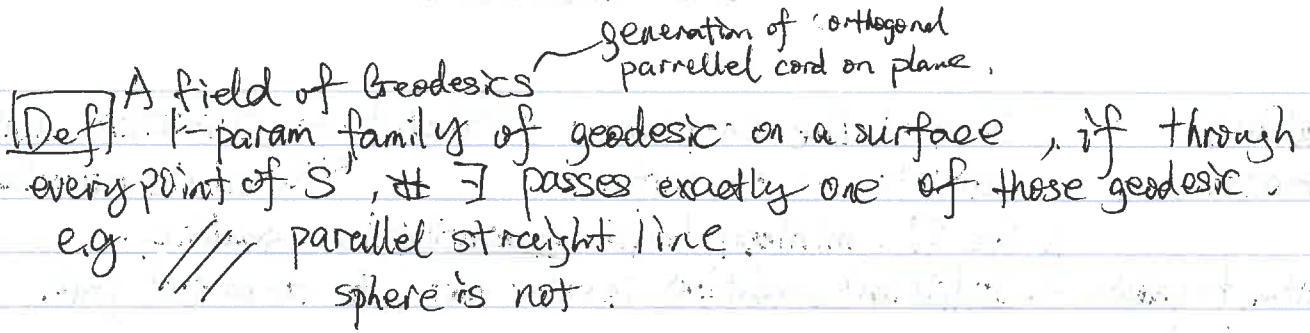 generation of orthogonal
parrellel cord on plane.
A field of Geodesics
Def 1-param family of geodesic on a surface, if through
every point of S, ∃ passes exactly one of those geodesic.
e.g. /// parallel straight line
sphere is not.